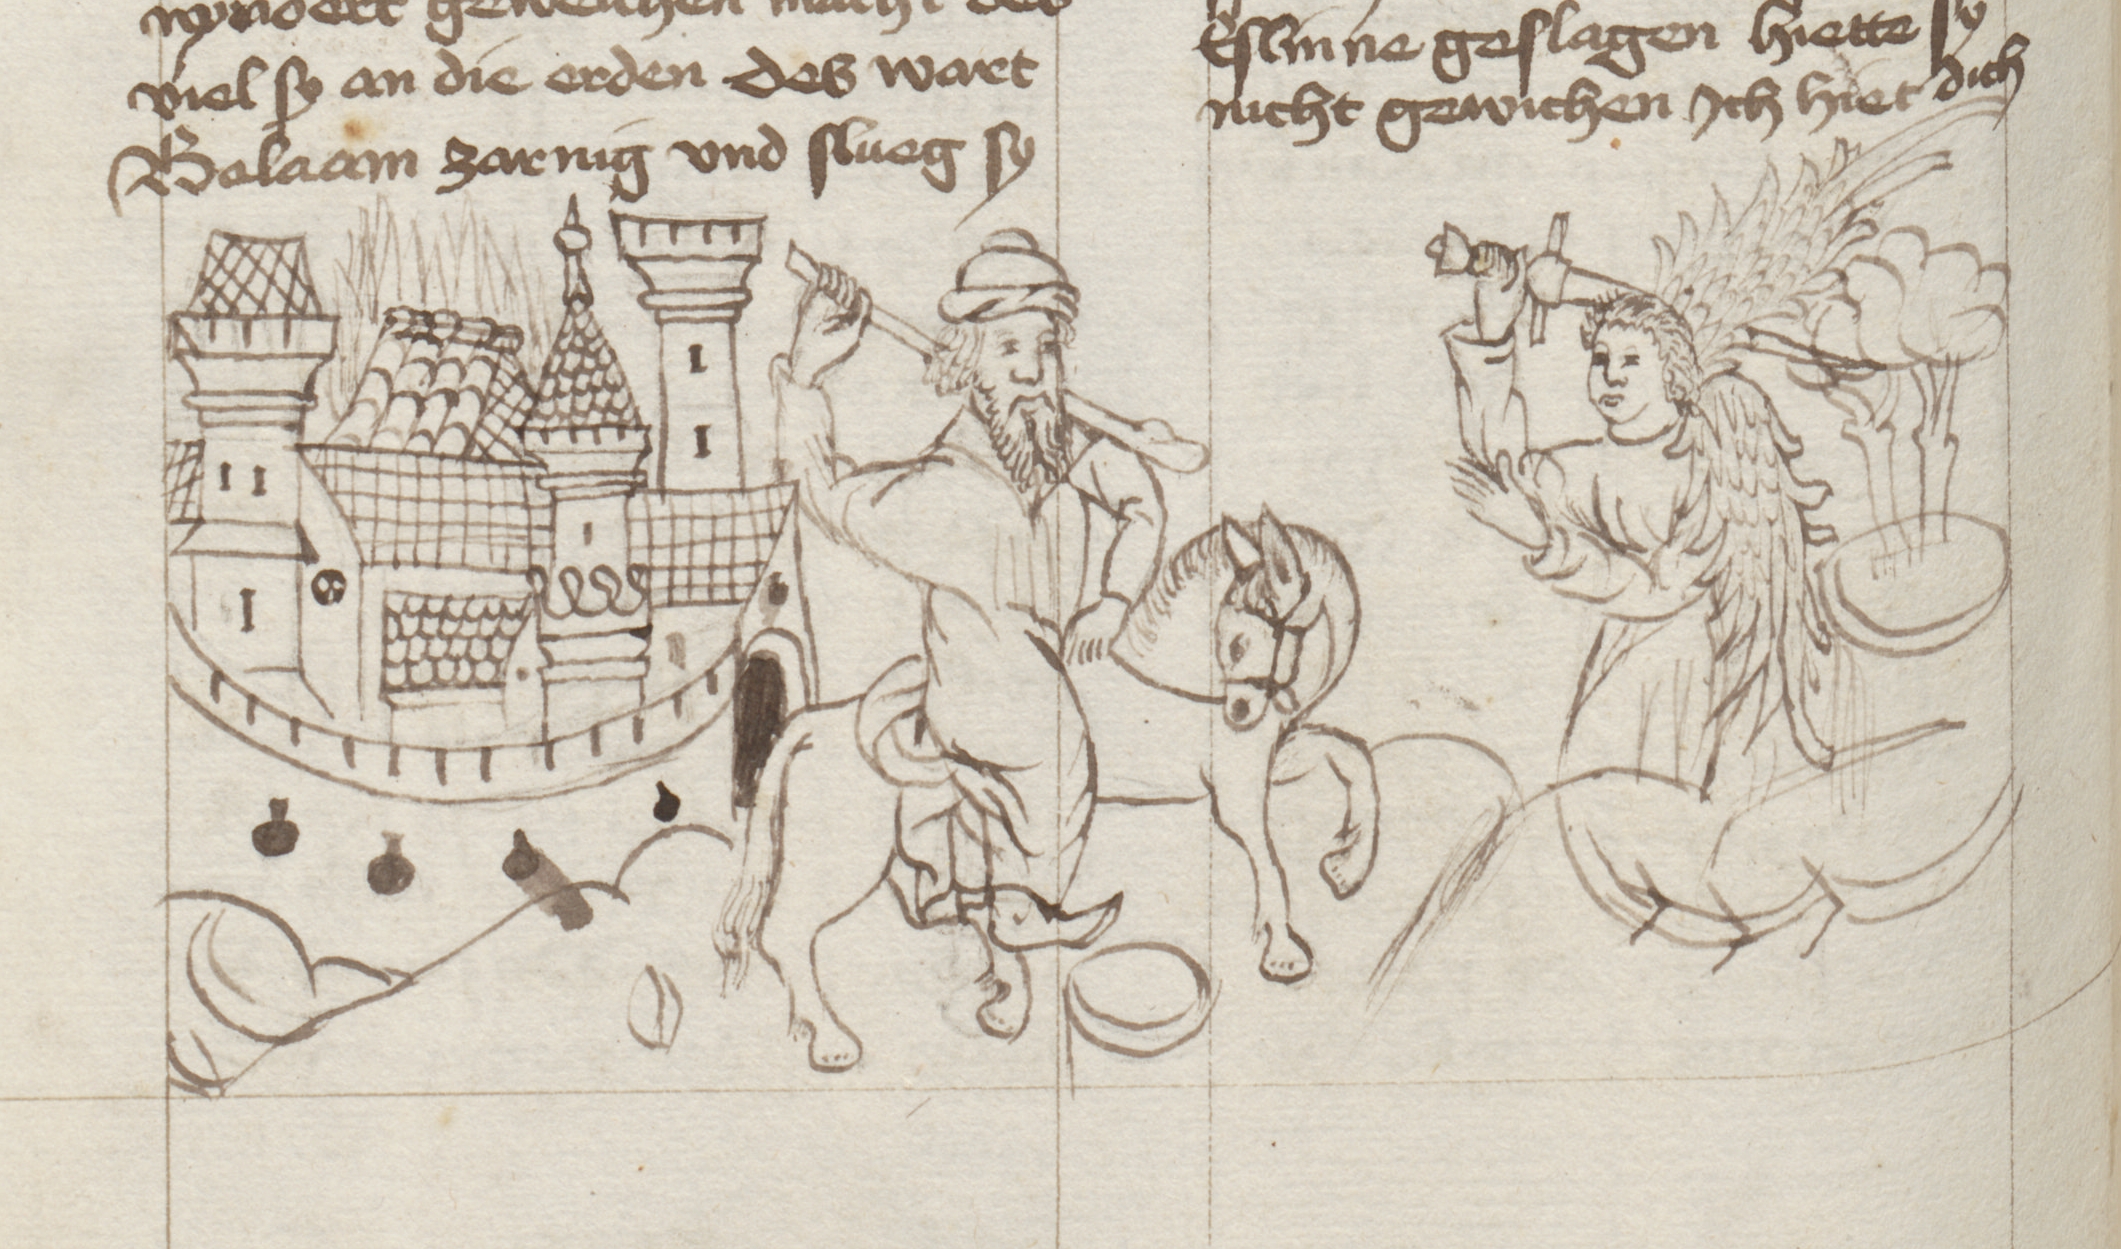 nyndert geweichen macht des
viel sy an die erden des wart
Belaam zarnig vnd slueg sy
Eslinne geslagen hiette sy
nicht gewichen Ich hiet dich